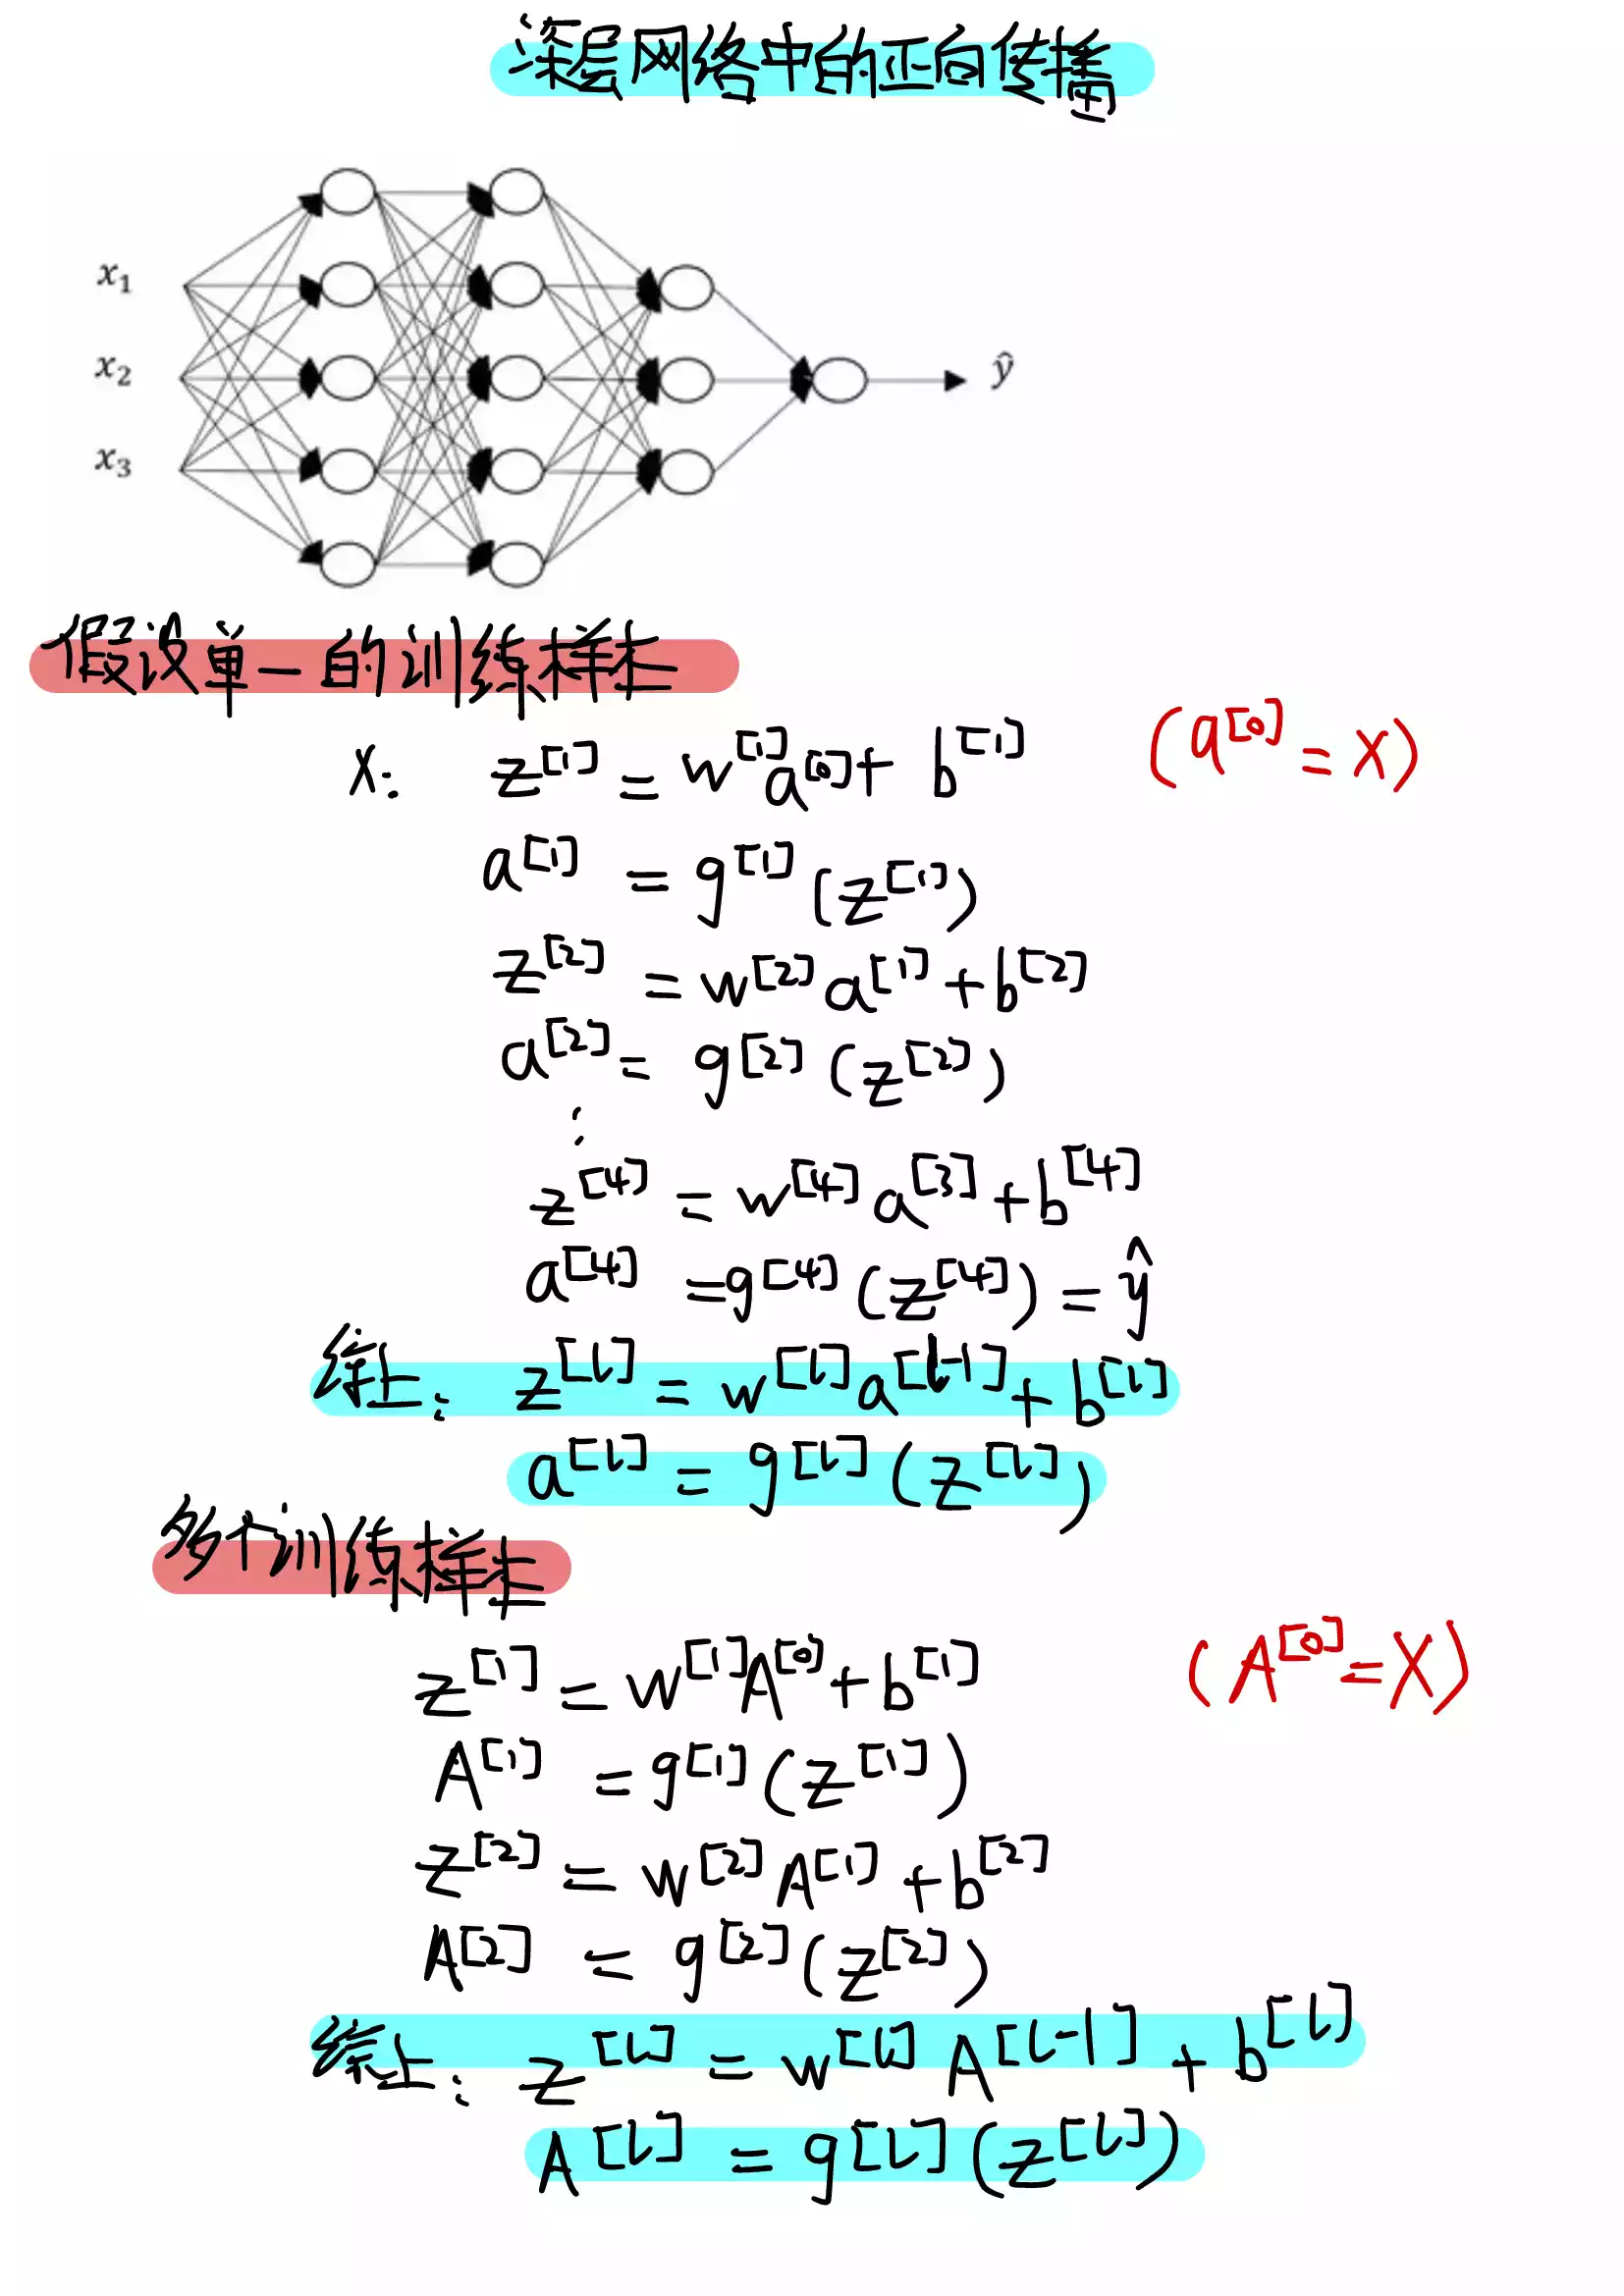 深层网络中的正向传播
x₁
x₂
x₃
ŷ
假设单一的训练样本
x: z^[1] = w^[1]a^[0] + b^[1] (a^[0] = x)
a^[1] = g^[1](z^[1])
z^[2] = w^[2]a^[1] + b^[2]
a^[2] = g^[2](z^[2])
⋮
z^[4] = w^[4]a^[3] + b^[4]
a^[4] = g^[4](z^[4]) = ŷ
综上: z^[l] = w^[l]a^[l-1] + b^[l]
a^[l] = g^[l](z^[l])
多个训练样本
z^[1] = w^[1]A^[0] + b^[1] (A^[0] = X)
A^[1] = g^[1](z^[1])
z^[2] = w^[2]A^[1] + b^[2]
A^[2] = g^[2](z^[2])
综上: z^[l] = w^[l]A^[l-1] + b^[l]
A^[l] = g^[l](z^[l])